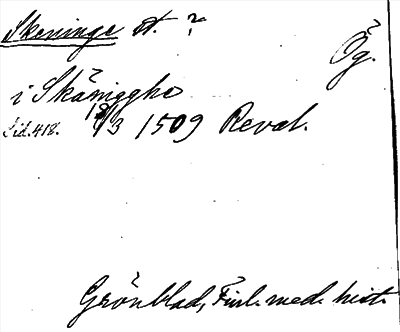 Skeninge st. ?
Ög.
i Skäniggho
Sid. 418. 19/3 1509 Reval.
Grönblad, Finl. med. hist.